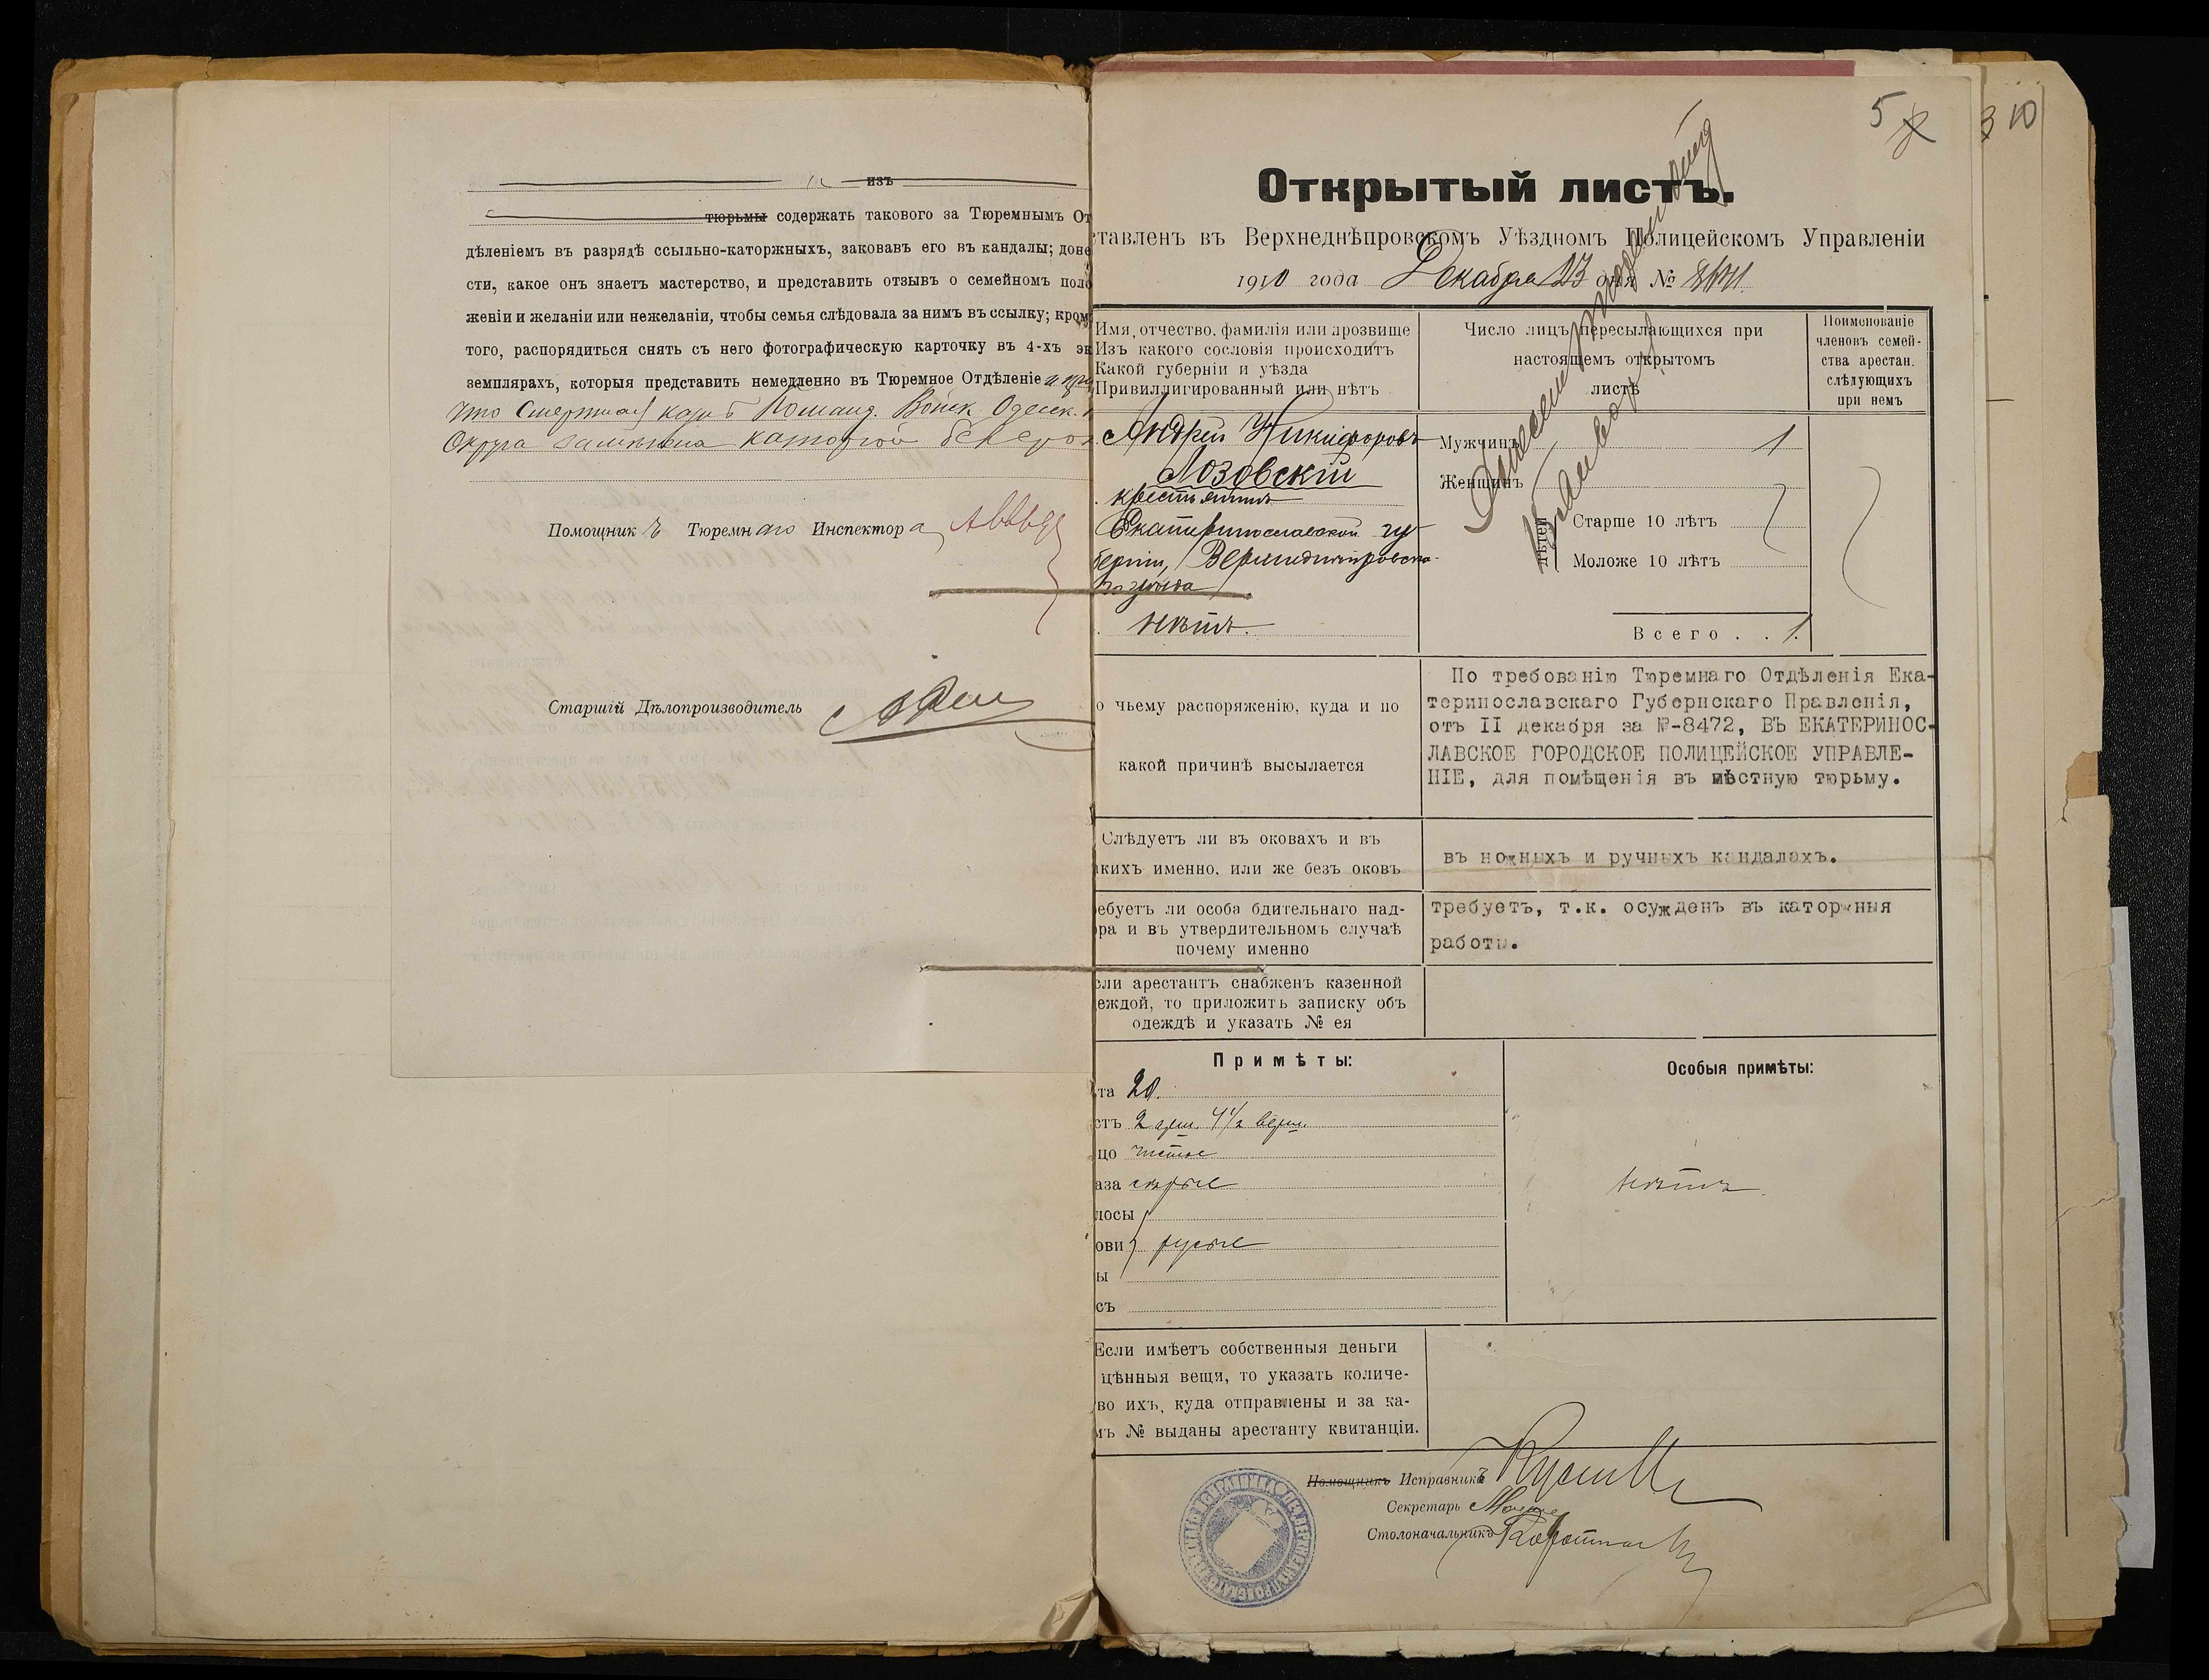 изъ
тюрьмы содержать такового за Тюремнымъ От
дѣленіемъ въ разрядѣ ссыльно-каторжныхъ, заковавъ его въ кандалы; доне
сти, какое онъ знаетъ мастерство, и представить отзывъ о семейномъ поло
женіи и желаніи или нежеланіи, чтобы семья слѣдовала за нимъ въ ссылку; кромѣ
того, распорядиться снять съ него фотографическую карточку въ 4-хъ эк
земплярахъ, которыя представить немедленно въ Тюремное Отдѣленіе
что Смертная казнь Команд. Войск. Одесск.
Округа замѣнена каторгой
Помощникъ Тюремнаго Инспектора
Старшій Дѣлопроизводитель
5
10
Открытый листъ.
ставленъ въ Верхнеднѣпровскомъ Уѣздномъ Полицейскомъ Управленіи
1910 года Декабря 23 дня №
Имя, отчество, фамилія или прозвище
Изъ какого сословія происходитъ
Какой губерніи и уѣзда
Привиллигированный или нѣтъ
Число лицъ пересылающихся при
настоящемъ открытомъ
листѣ
Поименованіе
членовъ семей-
ства арестан.
слѣдующихъ
при немъ
Андрей Никифоровъ
Лозовскій
крестьянинъ
Екатеринославской гу
берніи, Верхнеднѣпровска-
го уѣзда
нѣтъ.
Мужчинъ 1
Женщинъ
дѣтей
Старше 10 лѣтъ
Моложе 10 лѣтъ
Всего . . 1.
о чьему распоряженію, куда и по
какой причинѣ высылается
По требованію Тюремнаго Отдѣленія Ека-
теринославскаго Губернскаго Правленія,
отъ II декабря за №-8472, ВЪ ЕКАТЕРИНОС-
ЛАВСКОЕ ГОРОДСКОЕ ПОЛИЦЕЙСКОЕ УПРАВЛЕ-
НІЕ, для помѣщенія въ мѣстную тюрьму.
Слѣдуетъ ли въ оковахъ и въ
акихъ именно, или же безъ оковъ
въ ножныхъ и ручныхъ кандалахъ.
ребуетъ ли особа бдительнаго над-
ора и въ утвердительномъ случаѣ
почему именно
требуетъ, т.к. осужденъ въ каторжныя
работы.
сли арестантъ снабженъ казенной
еждой, то приложить записку объ
одеждѣ и указать № ея
Примѣты:
Особыя примѣты:
та 20.
стъ 2 арш. 4 1/2 верш.
цо чистое
аза сѣрые
лосы
ови русые
ы
съ
нѣтъ.
Если имѣетъ собственныя деньги
цѣнныя вещи, то указать количе-
во ихъ, куда отправлены и за ка-
мъ № выданы арестанту квитанціи.
Помощникъ Исправникъ
Секретарь
Столоначальникъ